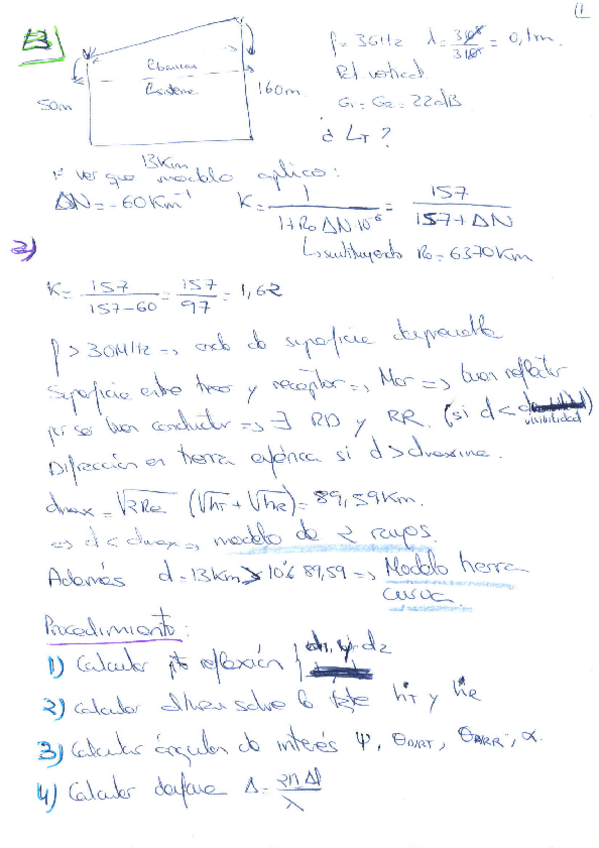 11
3
f = 3GHz λ = 3·10⁸/3·10⁹ = 0,1m.
Pol vertical
50m 160m.
G₁ = G₂ = 22dB
¿ L_T ?
13Km
1º ver que modelo aplico:
ΔN = -60Km⁻¹ K = 1/(1+R₀ ΔN·10⁻⁶) = 157/(157+ΔN)
2)
↳ sustituyendo R₀ = 6370Km
K = 157/(157-60) = 157/97 = 1,62
f > 30MHz => onda de superficie despreciable
Superficie entre trxor y receptor => Mar => buen reflector
por ser buen conductor => ∃ RD y RR. (si d < visibilidad)
Difracción en tierra esférica si d > dmáxima.
dmax = √2Re (√hT + √hR) = 89,59Km.
=> d < dmax => modelo de 2 rayos.
Además d = 13Km > 10% 89,59 => Modelo tierra
curva.
Procedimiento:
1) Calcular pto reflexión } d1, y d2
2) Calcular alturas sobre el hT y hR
3) Calcular ángulos de interés Ψ, , , α.
4) Calcular desfase Δ = 2π Δl/λ